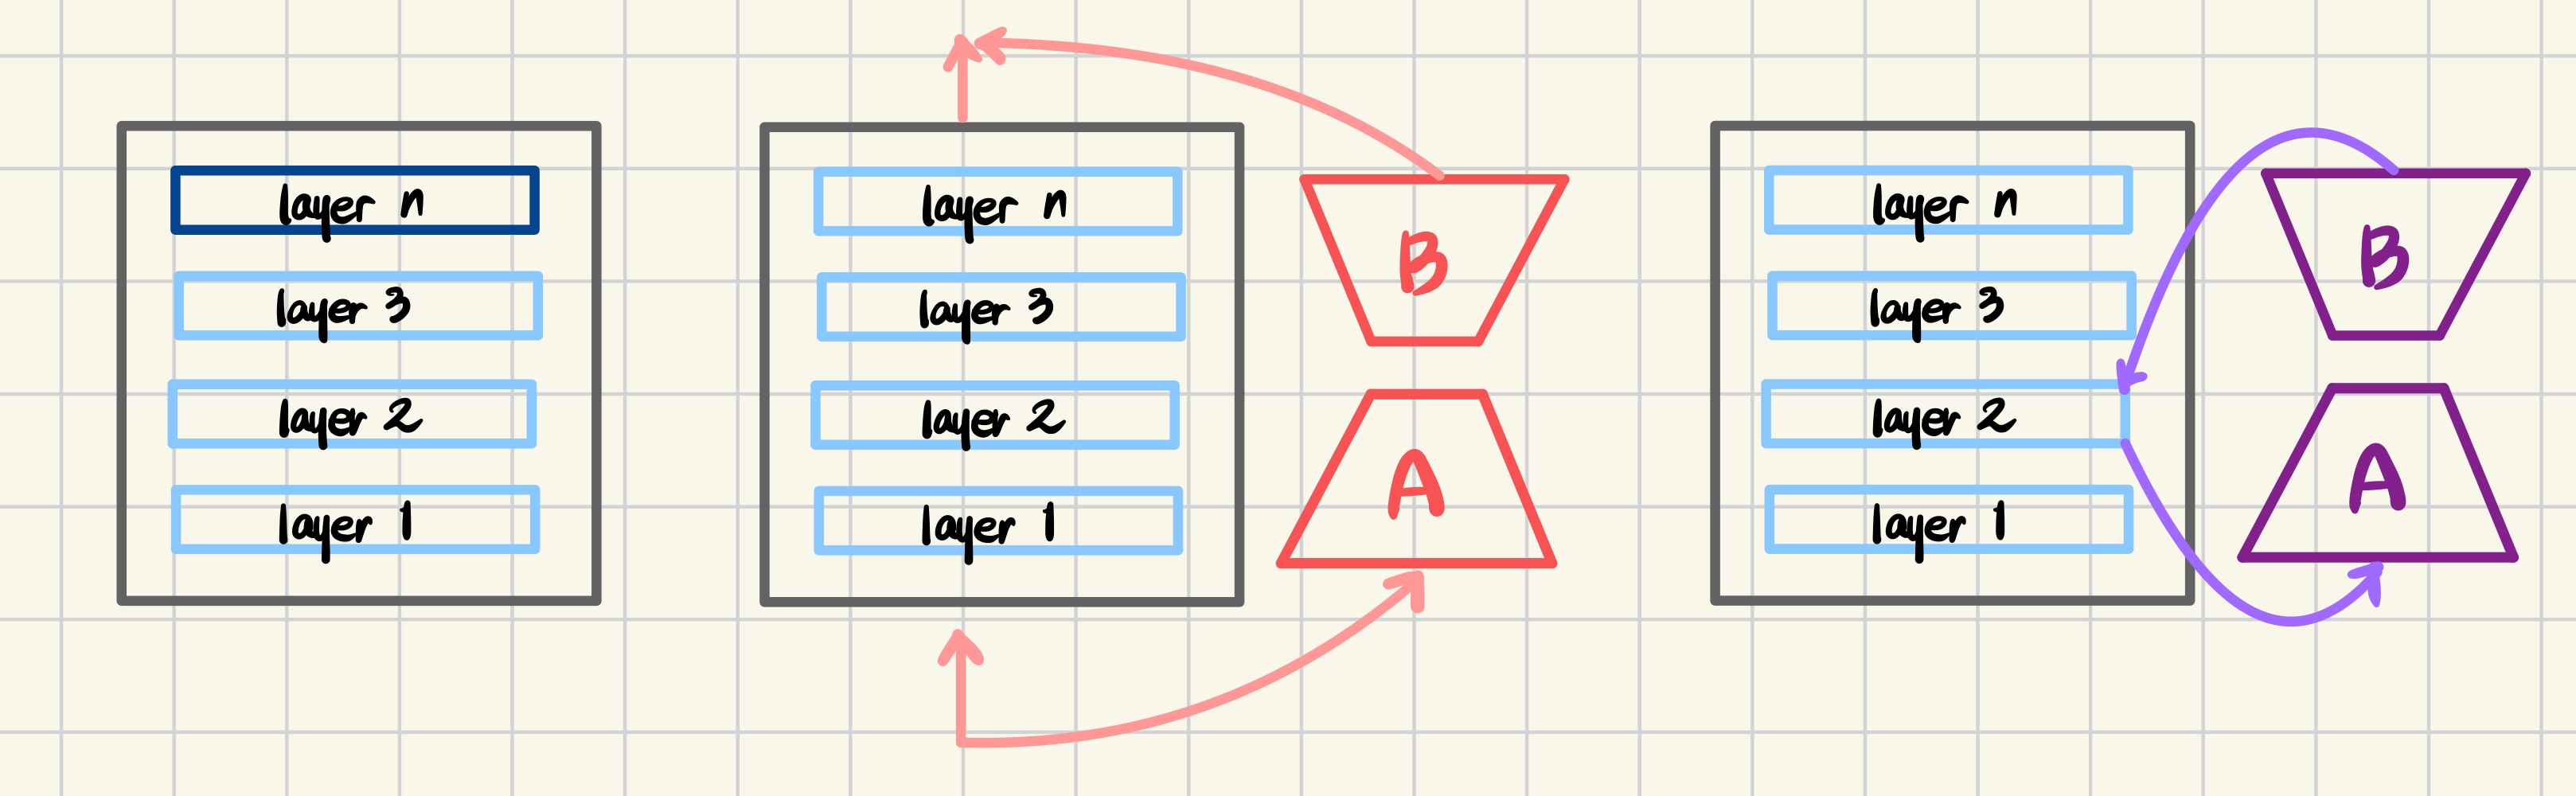 layer n
layer 3
layer 2
layer 1
layer n
layer 3
layer 2
layer 1
B
A
layer n
layer 3
layer 2
layer 1
B
A